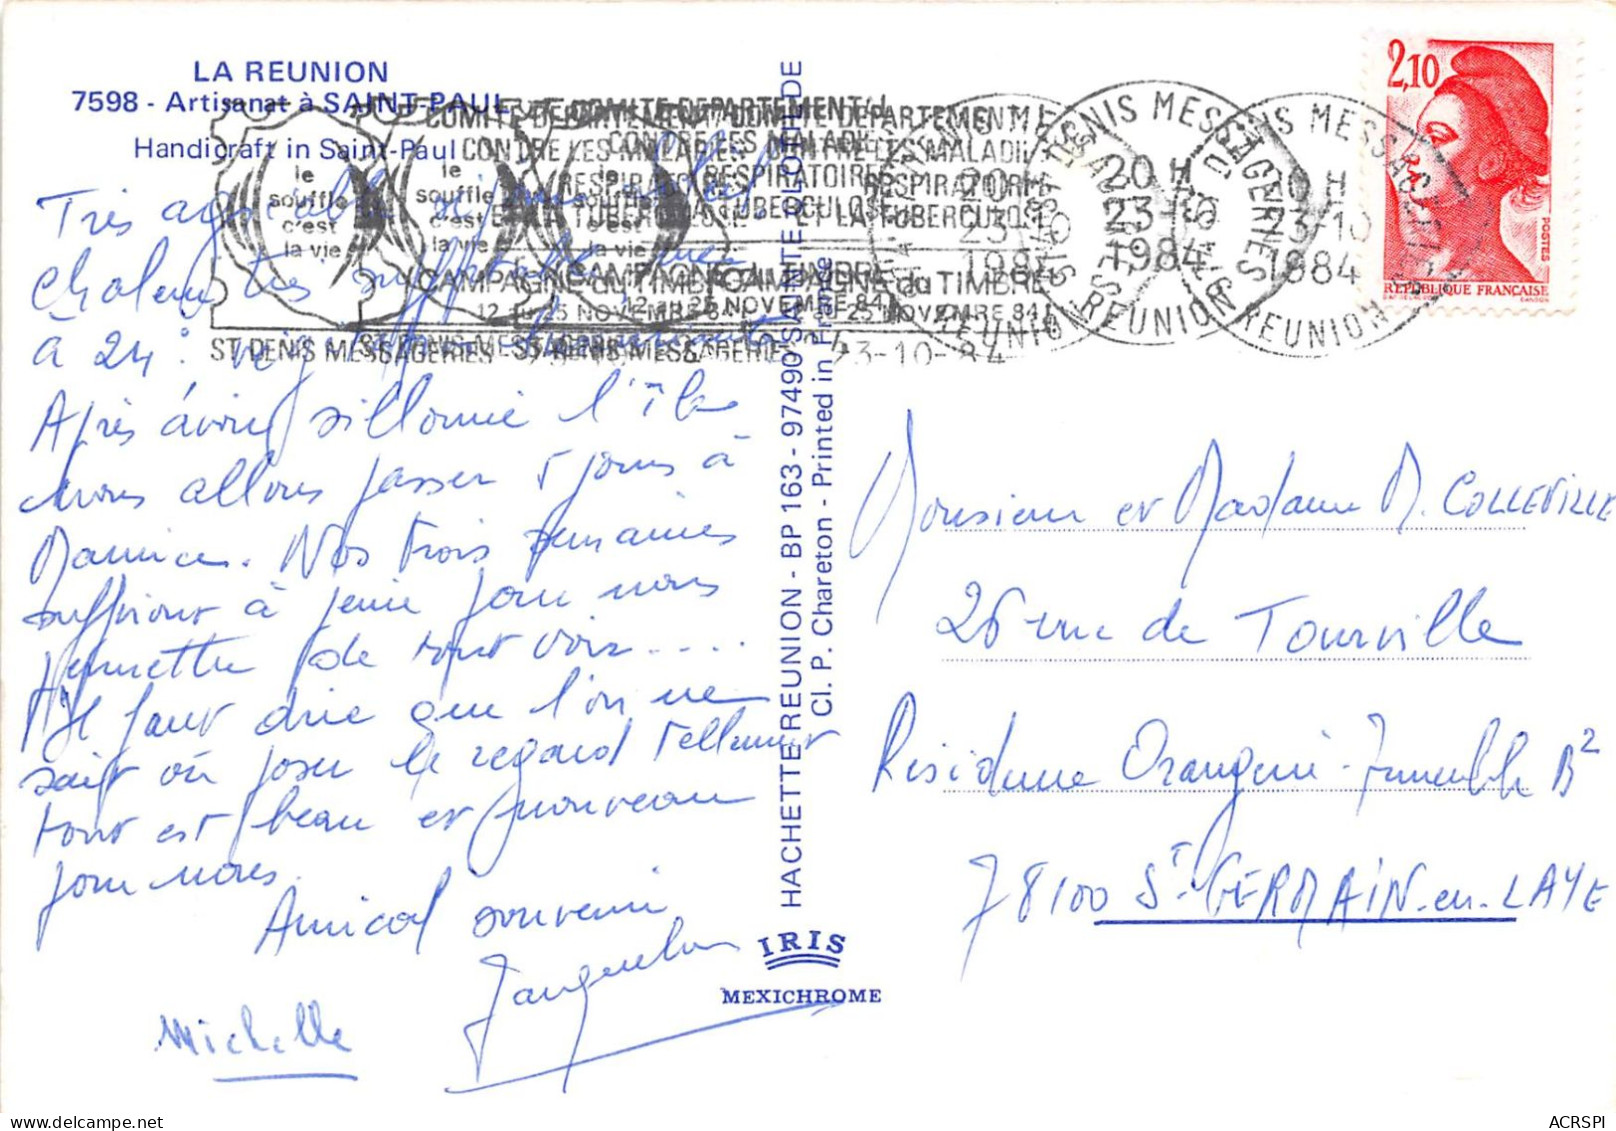 LA REUNION
7598 - Artisanat à SAINT-PAUL
Handicraft in Saint-Paul
COMITE DEPARTEMENTAL
CONTRE LES MALADIES
RESPIRATOIRES
ET LA TUBERCULOSE
le
souffle
c'est
la vie
CAMPAGNE du TIMBRE
12 au 25 NOVEMBRE 84
ST DENIS MESSAGERIES 23-10-84
ST DENIS MESSAGERIES
20 H
23-10
1984
REUNION
2,10
POSTES
REPUBLIQUE FRANÇAISE
Très agréable
Chaleur très supportable
à 24°
Après avoir sillonné l'île
nous allons passer 5 jours à
Maurice. Nos trois semaines
suffiront à peine pour nous
permettre de tout voir....
Il faut dire que l'on ne
sait où poser le regard tellement
tout est beau et nouveau
pour nous.
Amical souvenir
Jacqueline
Michelle
HACHETTE REUNION - BP 163 - 97490 SAINTE CLOTILDE
Cl. P. Chareton - Printed in France
IRIS
MEXICHROME
Monsieur et Madame M. COLLEVILLE
26 rue de Tourville
Résidence Orangerie - Immeuble B2
78100 ST-GERMAIN-en-LAYE
ACRSPI